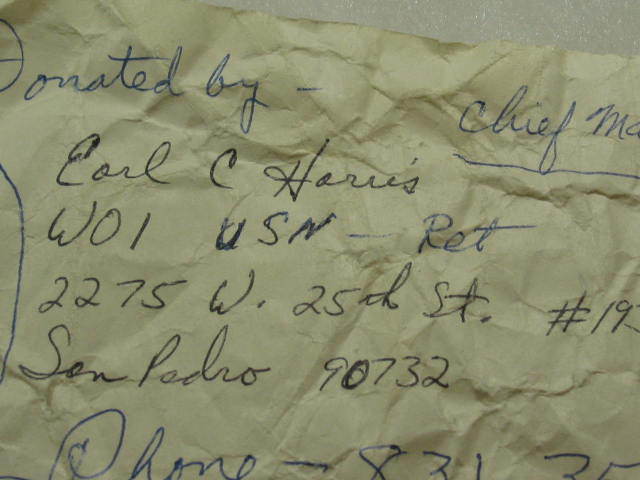 Donated by -
Chief Ma
Earl C Harris
WO1 USN - Ret
2275 W. 25th St. #193
San Pedro 90732
Phone - 831 35